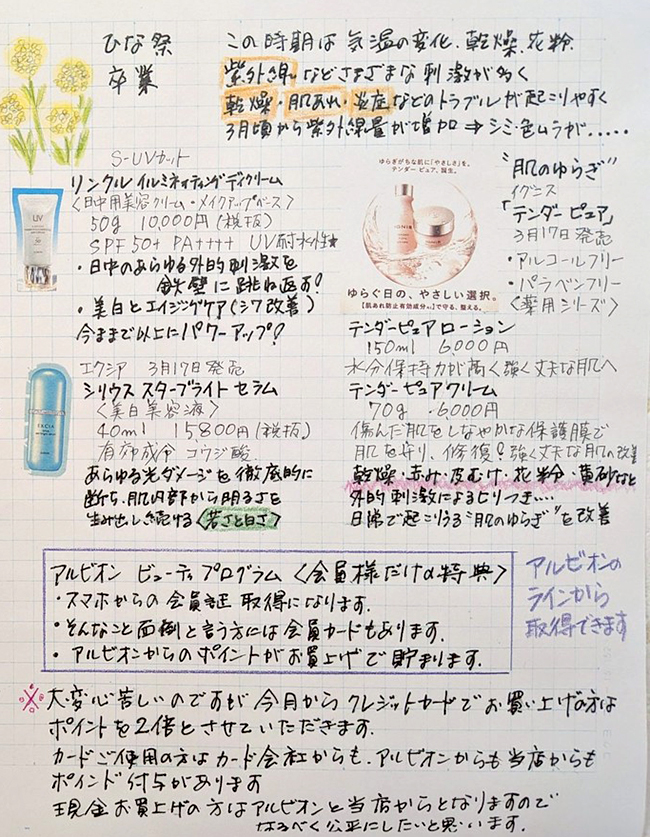 ひな祭
卒業
この時期は気温の変化、乾燥、花粉、
紫外線などさまざまな刺激が多く
乾燥・肌あれ・炎症などのトラブルが起こりやすく
3月頃から紫外線量が増加⇒シミ・色ムラが.....
S-UVカット
リンクルイルミネイティングデイクリーム
〈日中用美容クリーム・メイクアップベース〉
50g 10,000円(税抜)
SPF50+ PA++++ UV耐水性★
・日中のあらゆる外的刺激を
鉄壁に跳ね返す!
・美白とエイジングケア(シワ改善)
今まで以上にパワーアップ!
UV
ゆらぎがちな肌に「やさしさ」を。
テンダー ピュア、誕生。
IGNIS
ゆらぐ日の、やさしい選択。
【肌あれ防止有効成分※1】で守る、整える。
"肌のゆらぎ"
イグニス
「テンダーピュア」
3月17日発売
・アルコールフリー
・パラベンフリー
〈薬用シリーズ〉
テンダーピュアローション
150ml 6,000円
水分保持力が高く強く丈夫な肌へ
テンダーピュアクリーム
70g ・6000円
傷んだ肌をしなやかな保護膜で
肌を守り、修復!強く丈夫な肌の改善
乾燥・赤み・皮むけ・花粉・黄砂など
外的刺激によるヒリつき....
日常で起こりうる"肌のゆらぎ"を改善
エクシア 3月17日発売
シリウス スターブライト セラム
〈美白美容液〉
40ml 15800円(税抜)
有効成分 コウジ酸
あらゆる光ダメージを徹底的に
断ち、肌内部から明るさを
生み出し続ける〈若さと白さ〉
EXCIA
アルビオン ビューティプログラム〈会員様だけの特典〉
・スマホからの会員証取得になります。
・そんなこと面倒と言う方には会員カードもあります。
・アルビオンからのポイントがお買上げで貯まります。
アルビオンの
ラインから
取得できます
※大変心苦しいのですが今月からクレジットカードでお買い上げの方は
ポイントを2倍とさせていただきます.
カードご使用の方はカード会社からも、アルビオンからも当店からも
ポイント付与があります
現金お買上げの方はアルビオンと当店からとなりますので
なるべく公平にしたいと思います.